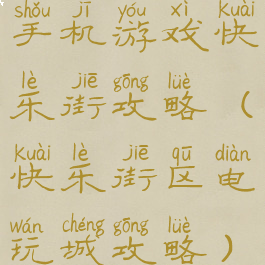 shǒu jī yóu xì kuài
手机游戏快
lè jiē gōng lüè
乐街攻略（
kuài lè jiē qū diàn
快乐街区电
wán chéng gōng lüè
玩城攻略）